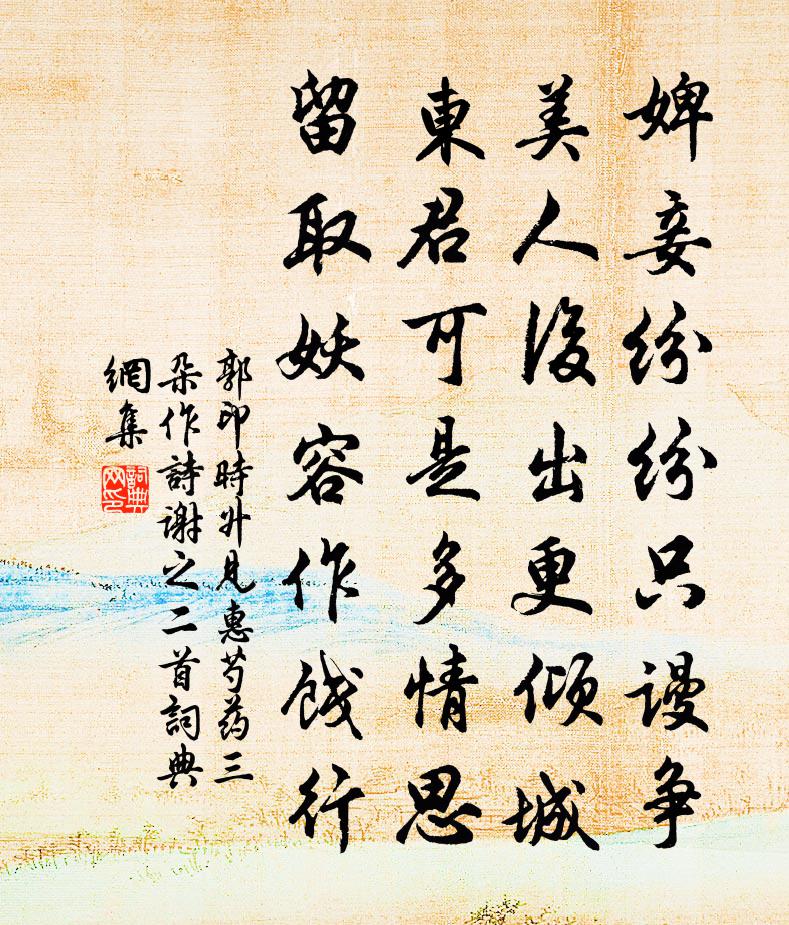 婢妾纷纷只谩争
美人後出更倾城
東君可是多情思
留取妖容作饯行
郭印時升见惠芍药三
朵作詩谢之二首詞典
網集
詞典
网印